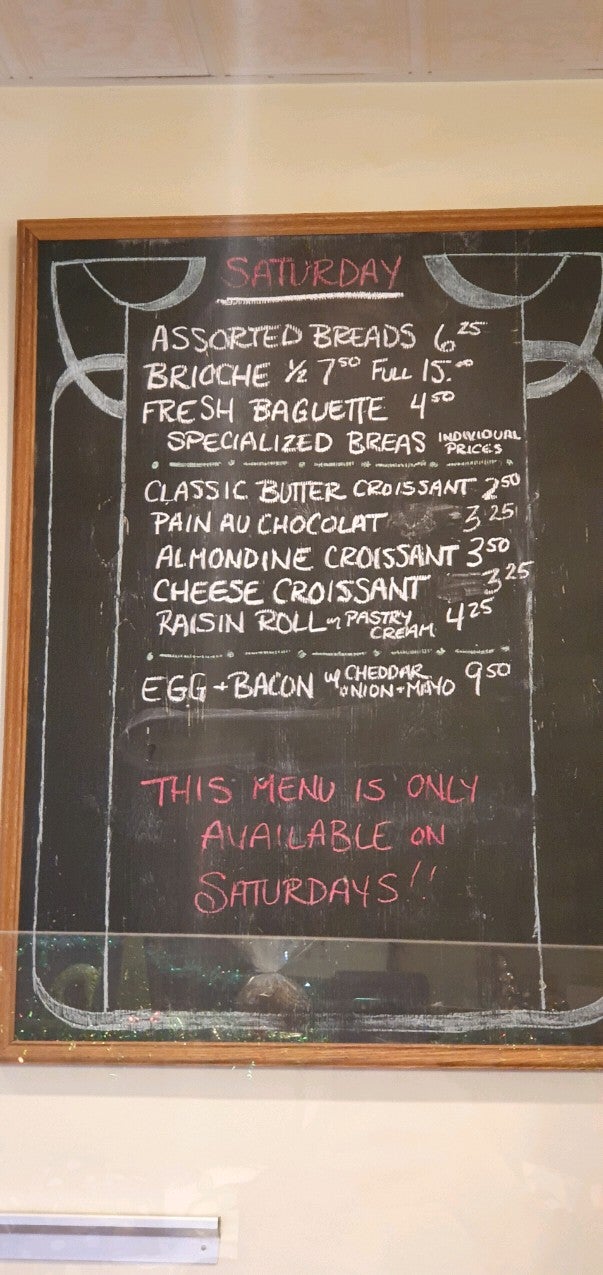 SATURDAY
ASSORTED BREADS 6.25
BRIOCHE 1/2 7.50 FULL 15.00
FRESH BAGUETTE 4.50
SPECIALIZED BREAS INDIVIDUAL PRICES
CLASSIC BUTTER CROISSANT 2.50
PAIN AU CHOCOLAT 3.25
ALMONDINE CROISSANT 3.50
CHEESE CROISSANT 3.25
RAISIN ROLL w/ PASTRY CREAM 4.25
EGG + BACON w/ CHEDDAR ONION + MAYO 9.50
THIS MENU IS ONLY
AVAILABLE ON
SATURDAYS!!